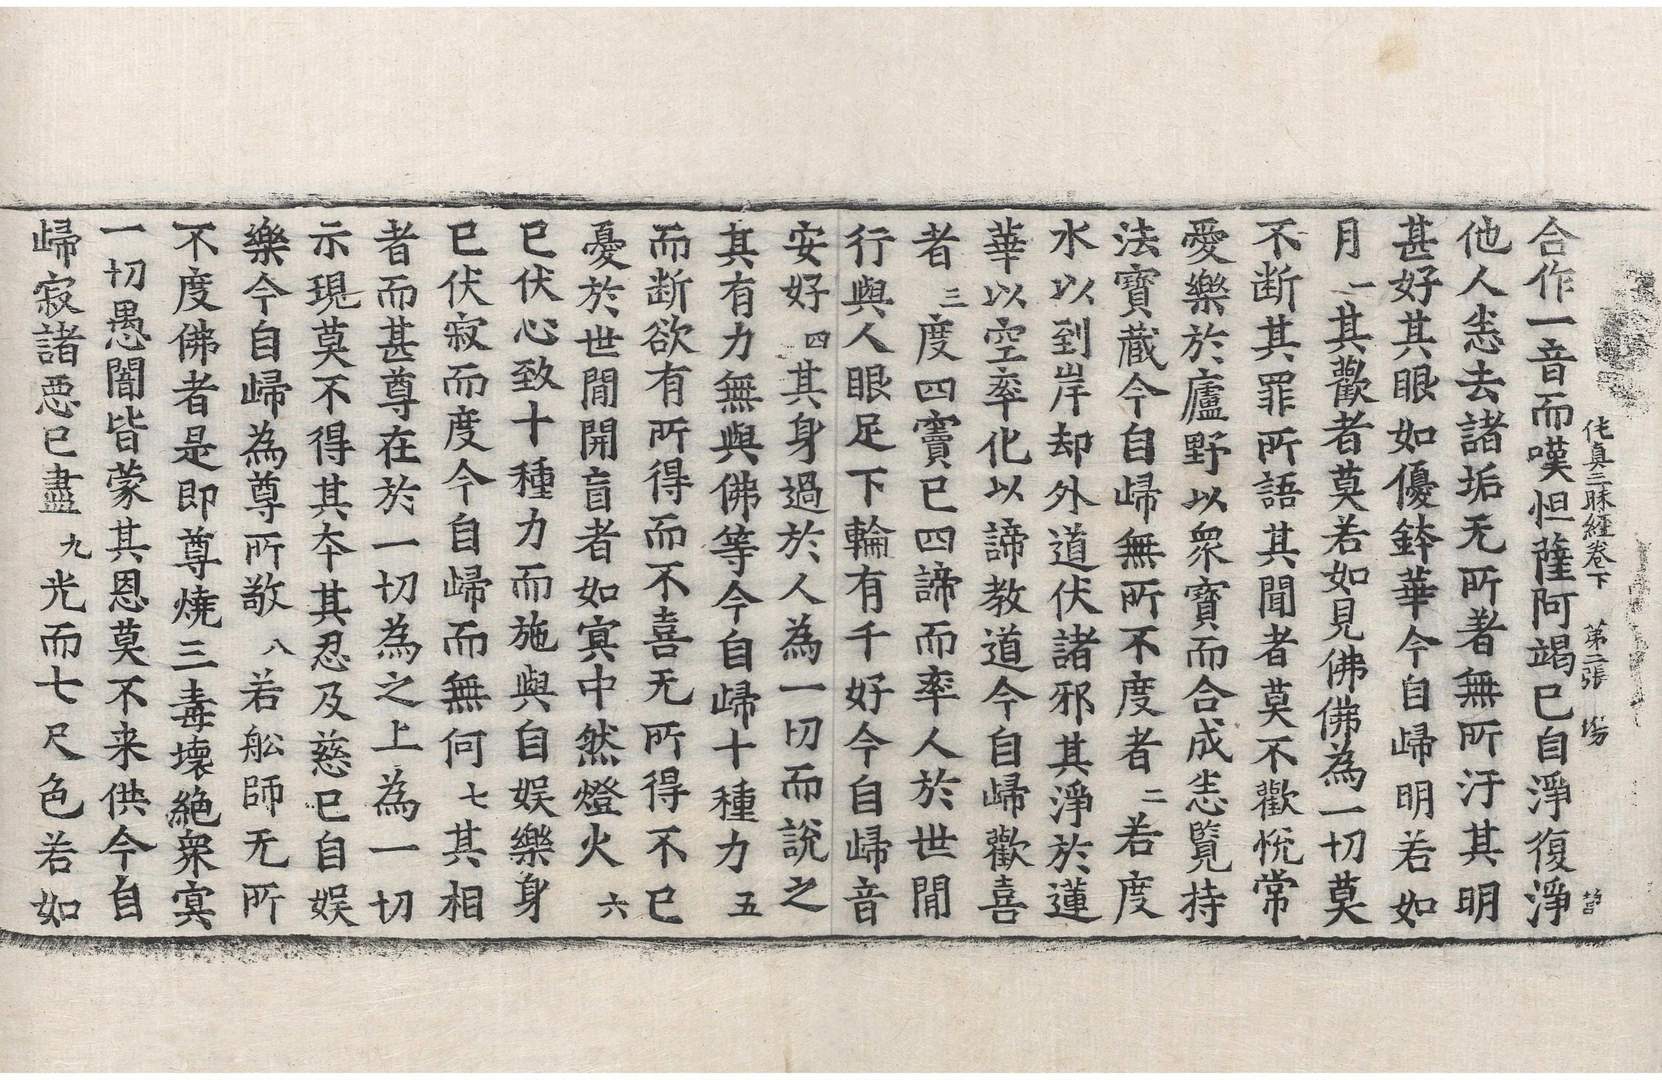 佗真三昧經卷下 第二張 塲
合作一音而嘆怛薩阿竭已自淨復淨
他人恙去諸垢无所著無所汙其明
甚好其眼如優鉢華今自歸明若如
月一其歡者莫若如見佛佛為一切莫
不断其罪所語其聞者莫不歡悅常
愛樂於廬野以眾寶而合成恙覧持
法寶藏今自歸無所不度者二若度
水以到岸却外道伏諸邪其淨於蓮
華以空率化以諦教道今自歸歡喜
者三度四瀆已四諦而率人於世間
行與人眼足下輪有千好今自歸音
安好四其身過於人為一切而說之
其有力無與佛等今自歸十種力五
而断欲有所得而不喜无所得不已
憂於世間開盲者如冥中然燈火六
已伏心致十種力而施與自娱樂身
已伏寂而度今自歸而無何七其相
者而甚尊在於一切為之上為一切
示現莫不得其夲其忍及慈已自娱
樂今自歸為尊所敬八若舩師无所
不度佛者是即尊燒三毒壞絶眾冥
一切愚闇皆蒙其恩莫不来供今自
歸寂諸惡已盡九光而七尺色若如